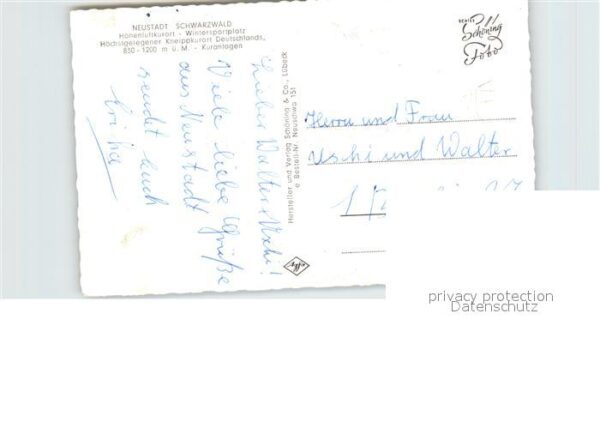 NEUSTADT SCHWARZWALD
Höhenluftkurort - Wintersportplatz
Höchstgelegener Kneippkurort Deutschlands,
850 - 1200 m ü. M. - Kuranlagen
Lieber Walter + Uschi!
Viele liebe Grüße
aus Neustadt
sendet Euch
Erika
Hersteller und Verlag Schöning & Co., Lübeck
Bestell-Nr. Neuschwa 151
Schöning
Foto
Herrn und Frau
Uschi und Walter
1
privacy protection
Datenschutz